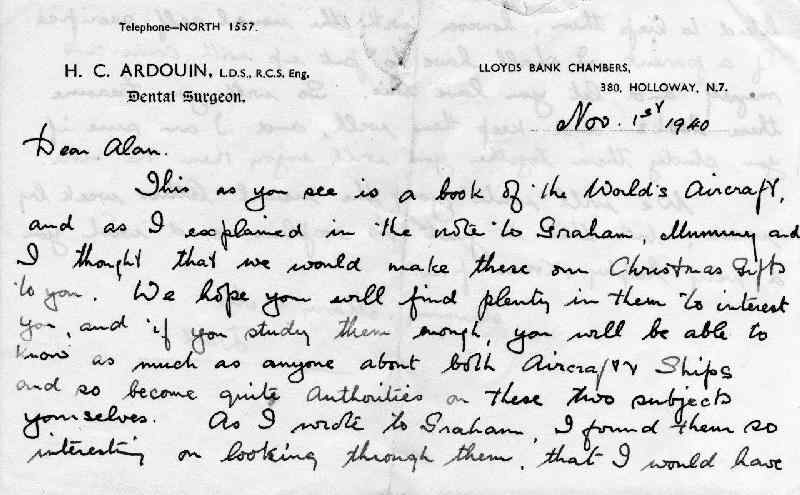 Telephone—NORTH 1557.
H. C. ARDOUIN, L.D.S., R.C.S. Eng.
Dental Surgeon.
LLOYDS BANK CHAMBERS,
380, HOLLOWAY, N.7.
Nov. 1st 1940
Dear Alan.
This as you see is a book of the World's Aircraft,
and as I explained in the note to Graham, Mummy and
I thought that we would make these our Christmas Gifts
to you. We hope you will find plenty in them to interest
you, and if you study them enough, you will be able to
know as much as anyone about both Aircraft & Ships
and so become quite Authorities on these two subjects
yourselves. As I wrote to Graham, I found them so
interesting on looking through them, that I would have